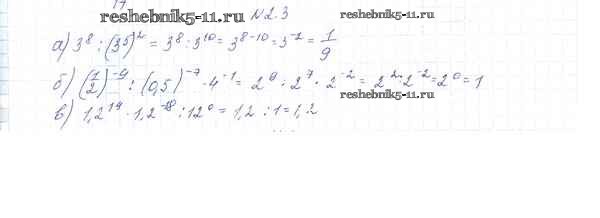 17
reshebnik5-11.ru №2.3 reshebnik5-11.ru
а) 3⁸ : (3⁵)² = 3⁸ : 3¹⁰ = 3⁸⁻¹⁰ = 3⁻² = 1/9
б) (1/2)⁻⁹ : (0,5)⁻⁷ · 4⁻¹ = 2⁹ : 2⁷ · 2⁻² = 2² · 2⁻² = 2⁰ = 1
reshebnik5-11.ru reshebnik5-11.ru
в) 1,2¹⁹ · 1,2⁻¹⁸ : 12⁰ = 1,2 : 1 = 1,2